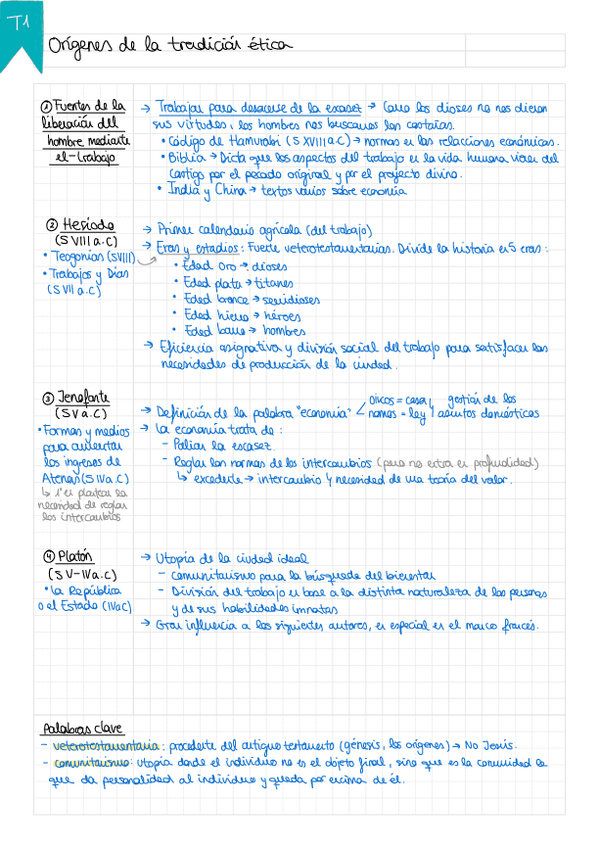 T1
Orígenes de la tradición ética
① Fuentes de la
liberación del
hombre mediante
el trabajo
→ Trabajar para deshacerse de la escasez → Como los dioses no nos dieron
sus virtudes, los hombres nos buscamos las castañas.
• Código de Hamurabi (S XVIII a.C) → normas en las relaciones económicas.
• Biblia → Dicta que los aspectos del trabajo en la vida humana vienen del
castigo por el pecado original y por el proyecto divino.
• India y China → textos varios sobre economía
② Hesíodo
(S VIII a.C)
• Teogonías (S VIII)
• Trabajos y Días
(S VII a.C)
→ Primer calendario agrícola (del trabajo)
→ Eras y estadios: Fuente veterotestamentarias. Divide la historia en 5 eras:
• Edad oro → dioses
• Edad plata → titanes
• Edad bronce → semidioses
• Edad hierro → héroes
• Edad barro → hombres
→ Eficiencia asignativa y división social del trabajo para satisfacer las
necesidades de producción de la ciudad.
③ Jenofonte
(S V a.C)
• Formas y medios
para aumentar
los ingresos de
Atenas (S IV a.C)
↳ 1º en plantear la
necesidad de reglar
los intercambios
→ Definición de la palabra "economía" < oicos = casa, nomos = ley } gestión de los asuntos domésticos
→ La economía trata de:
– Paliar la escasez.
– Reglar las normas de los intercambios (pero no entra en profundidad)
↳ excedente → intercambio y necesidad de una teoría del valor.
④ Platón
(S V-IV a.C)
• La República
o el Estado (IV a.C)
→ Utopía de la ciudad ideal
– comunitarismo para la búsqueda del bienestar
– División del trabajo en base a la distinta naturaleza de las personas
y de sus habilidades innatas
→ Gran influencia a los siguientes autores, en especial en el marco francés.
Palabras clave
– veterotestamentaria: procedente del antiguo testamento (génesis, los orígenes) → No Jesús.
– comunitarismo: utopía donde el individuo no es el objeto final, sino que es la comunidad la
que da personalidad al individuo y queda por encima de él.